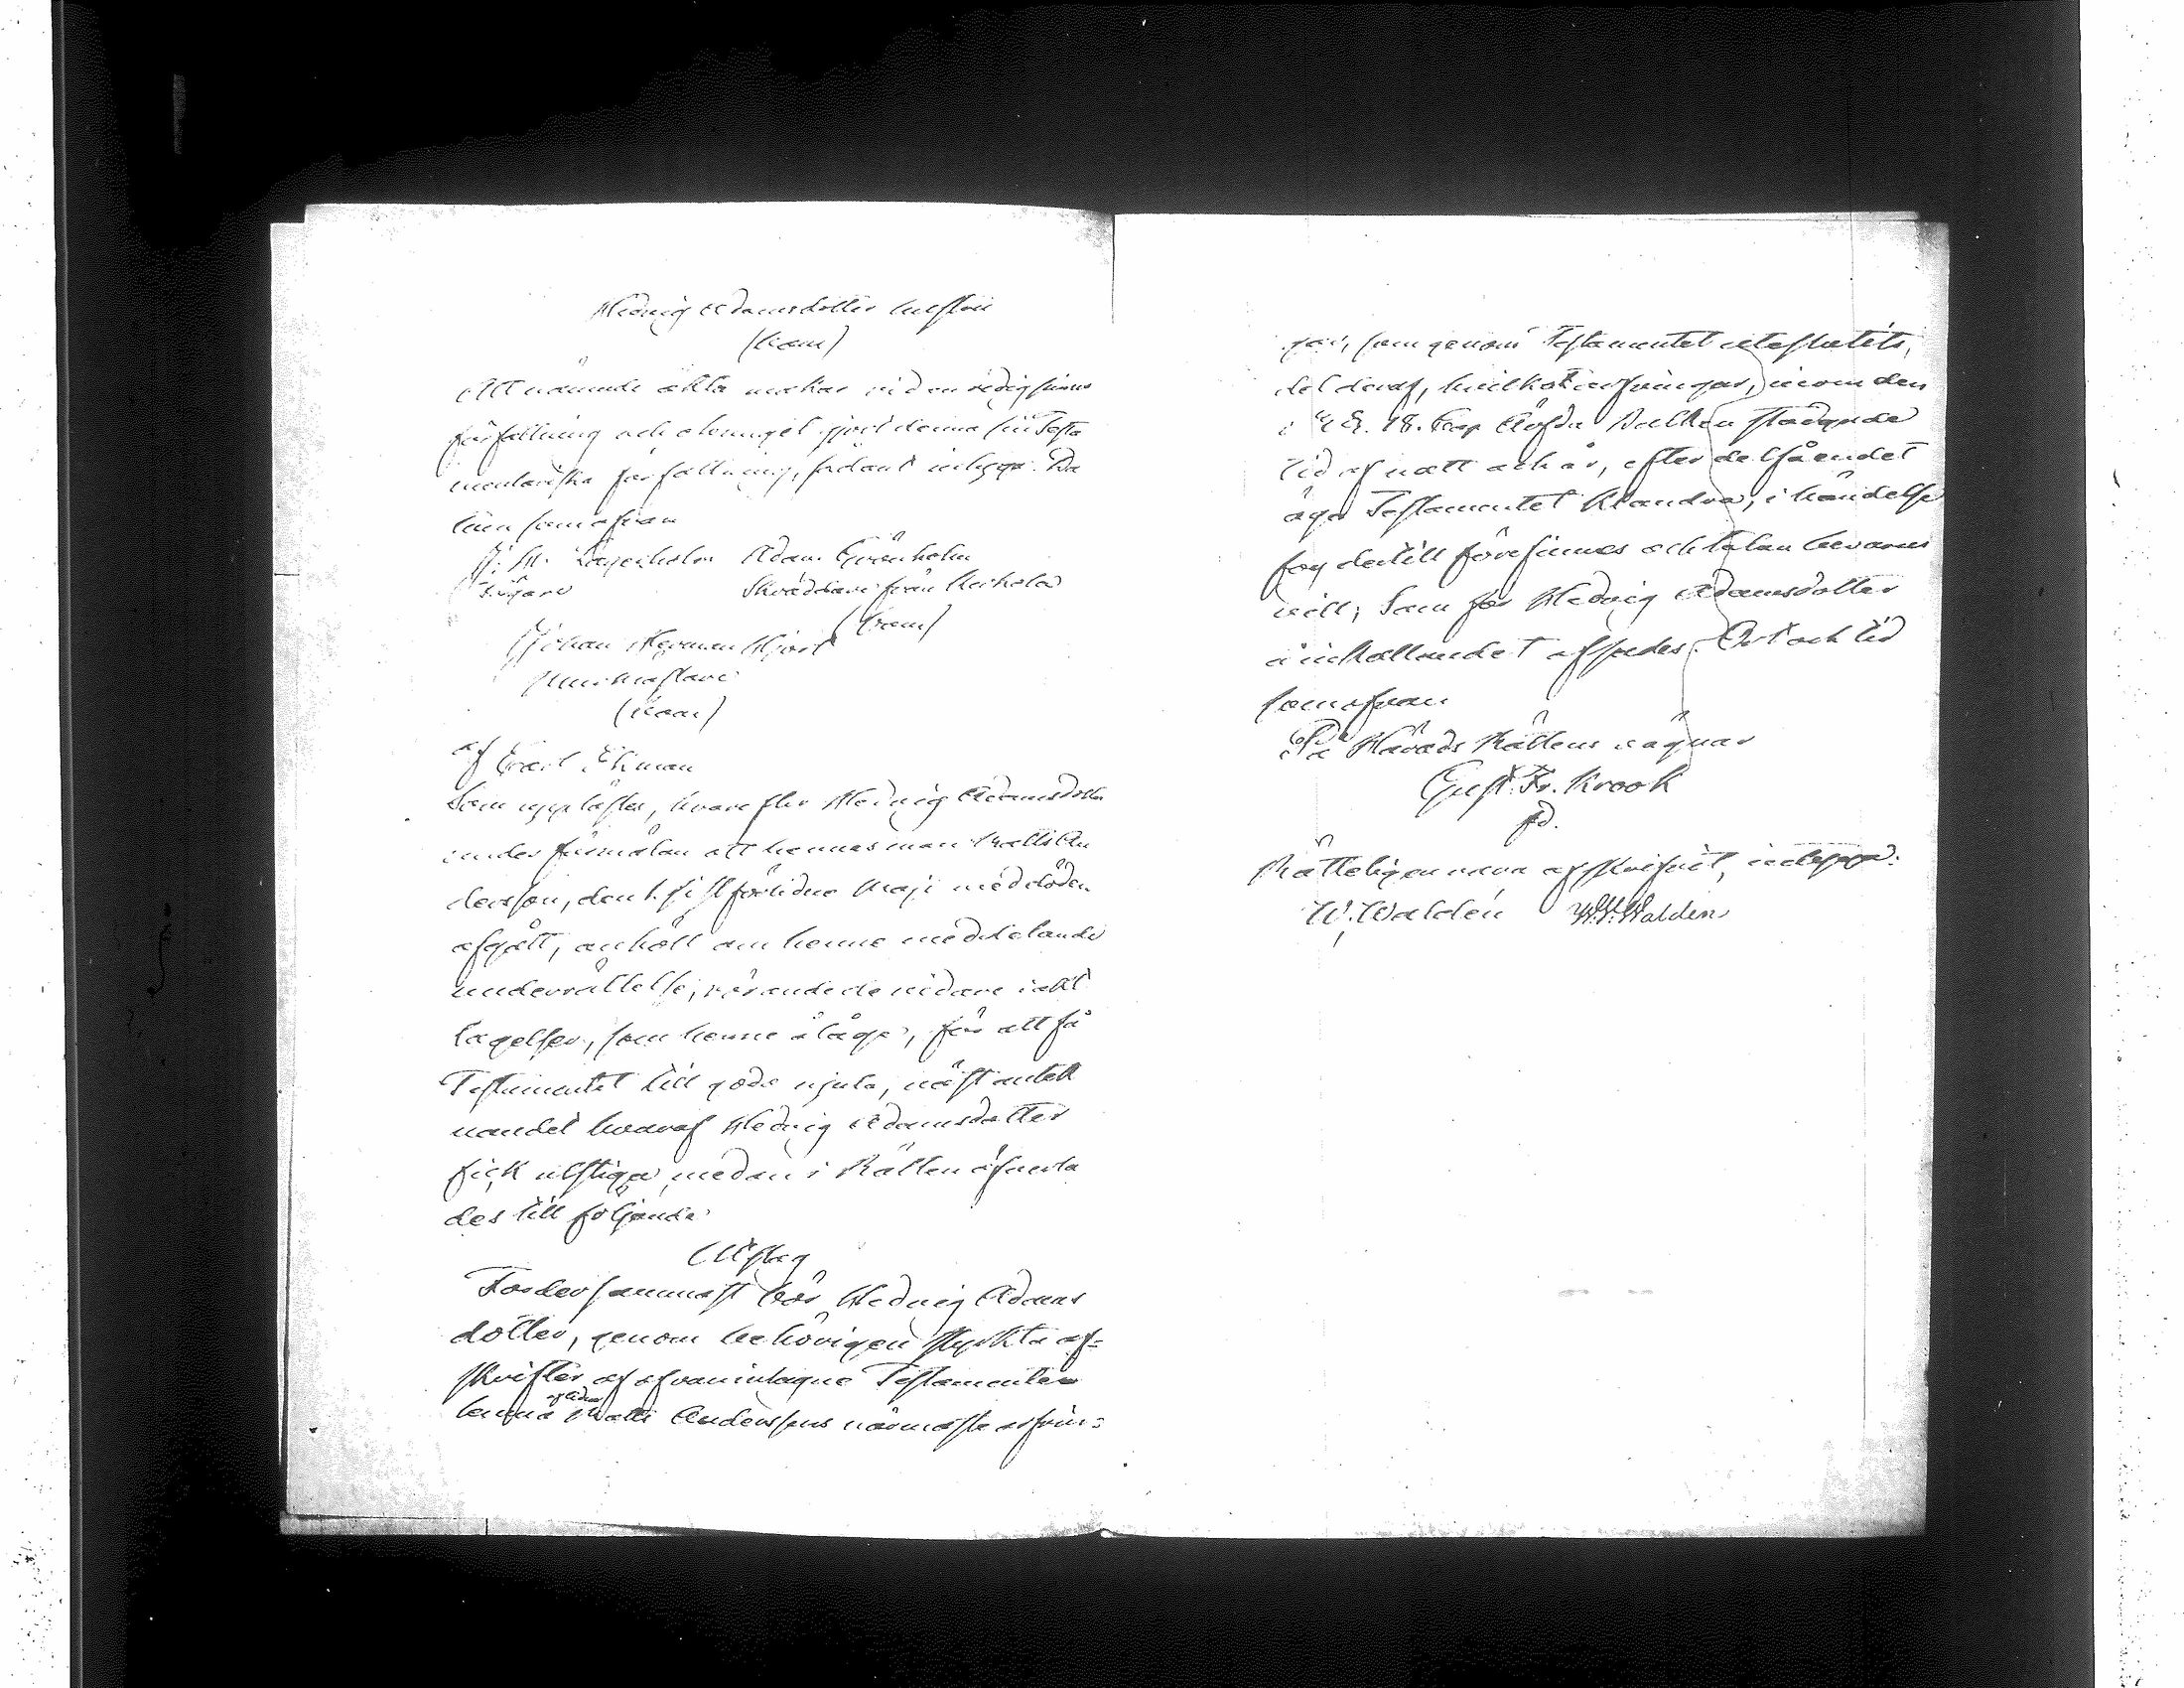 Hedvig Adamsdotter
(bom)
Att nämnde äkta makar vid en redig sinns
författning och otvunget gjort denna sin Testa
mentariska författning, sådant intyga. Da
tum som ofvan
J. H. Lagerholm Adam Grönholm
Skräddare från
(bom)
Johan Herman Hjort
(bom)
af Carl Ekman
Som upplästes, hvarefter Hedvig Adamsdotter
under förmälan att hennes man Matts An
dersson, den 1. sistförlidne Maji med döden
afgått, anhöll om henne meddelande
underrättelse, rörande de vidare iakt
tagelser, som henne åläge, för att få
Testamentet till godo njuta, näst anteck
nandet hvaraf Hedvig Adamsdotter
fick utstiga medan i Rätten öfverla
des till följande
Utslag
Fordersammast bör Hedvig Adams
dotter, genom behörigen styrkta af=
skrifter af ofvanintagne Testamente
lemna aflidne Matts Anderssons närmaste arfvin=
gar, som genom Testamentet uteslutits,
del deraf, hvilka arfvingar, inom den
i 18. Cap Ärfda Balken stadgade
tid af natt och år, efter delfåendet
äga Testamentet klandra, i händelse
fog dertill förefinnes och talan bevaras
vill; Som för Hedvig Adamsdotter
å inkallandet afsades. Ort och tid
som ofvan
På Härads Rättens vägnar
Gust. Fr. Krook
fd.
Rätteligen vara afskrifvit, intyga:
W. Waldén W. Walden